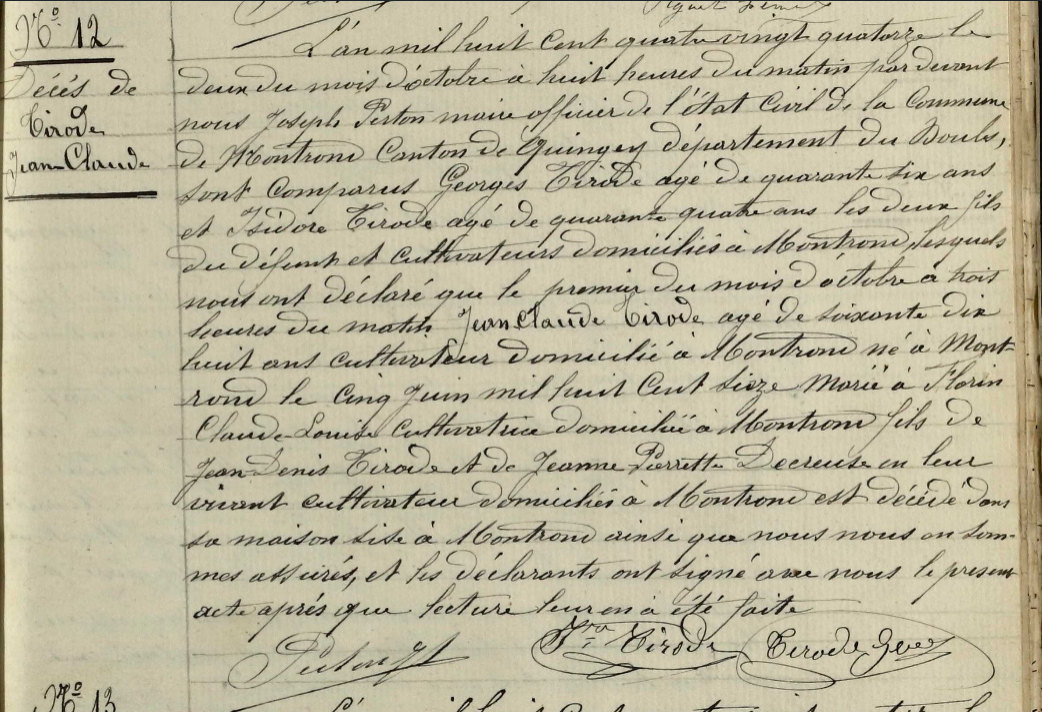 Nº 12
Décés de
Tirode
Jean-Claude
L'an mil huit cent quatre vingt quatorze le
deux du mois d'octobre à huit heures du matin par devant
nous Joseph Perton maire officier de l'état Civil de la Commune
de Montrond Canton de Quingey département du Doubs,
sont comparus Georges Tirode agé de quarante six ans
et Isidore Tirode agé de quarante quatre ans les deux fils
du défunt et cultivateurs domiciliés à Montrond, lesquels
nous ont déclaré que le premier du mois d'octobre à trois
heures du matin Jean Claude Tirode agé de soixante dix
huit ans cultivateur domicilié à Montrond né à Mont-
rond le cinq Juin mil huit Cent Sieze Marié à Florin
Claude-Louise cultivatrice domiciliée à Montrond fils de
Jean-Denis Tirode et de Jeanne-Pierrette Decreuse en leur
vivant cultivateur domiciliés à Montrond est décédé dans
sa maison sise à Montrond ainsi que nous nous en som-
mes assurés, et les déclarants ont signé avec nous le present
acte aprés que lecture leur en à été faite
Tirode
Tirode Geo
Nº 13